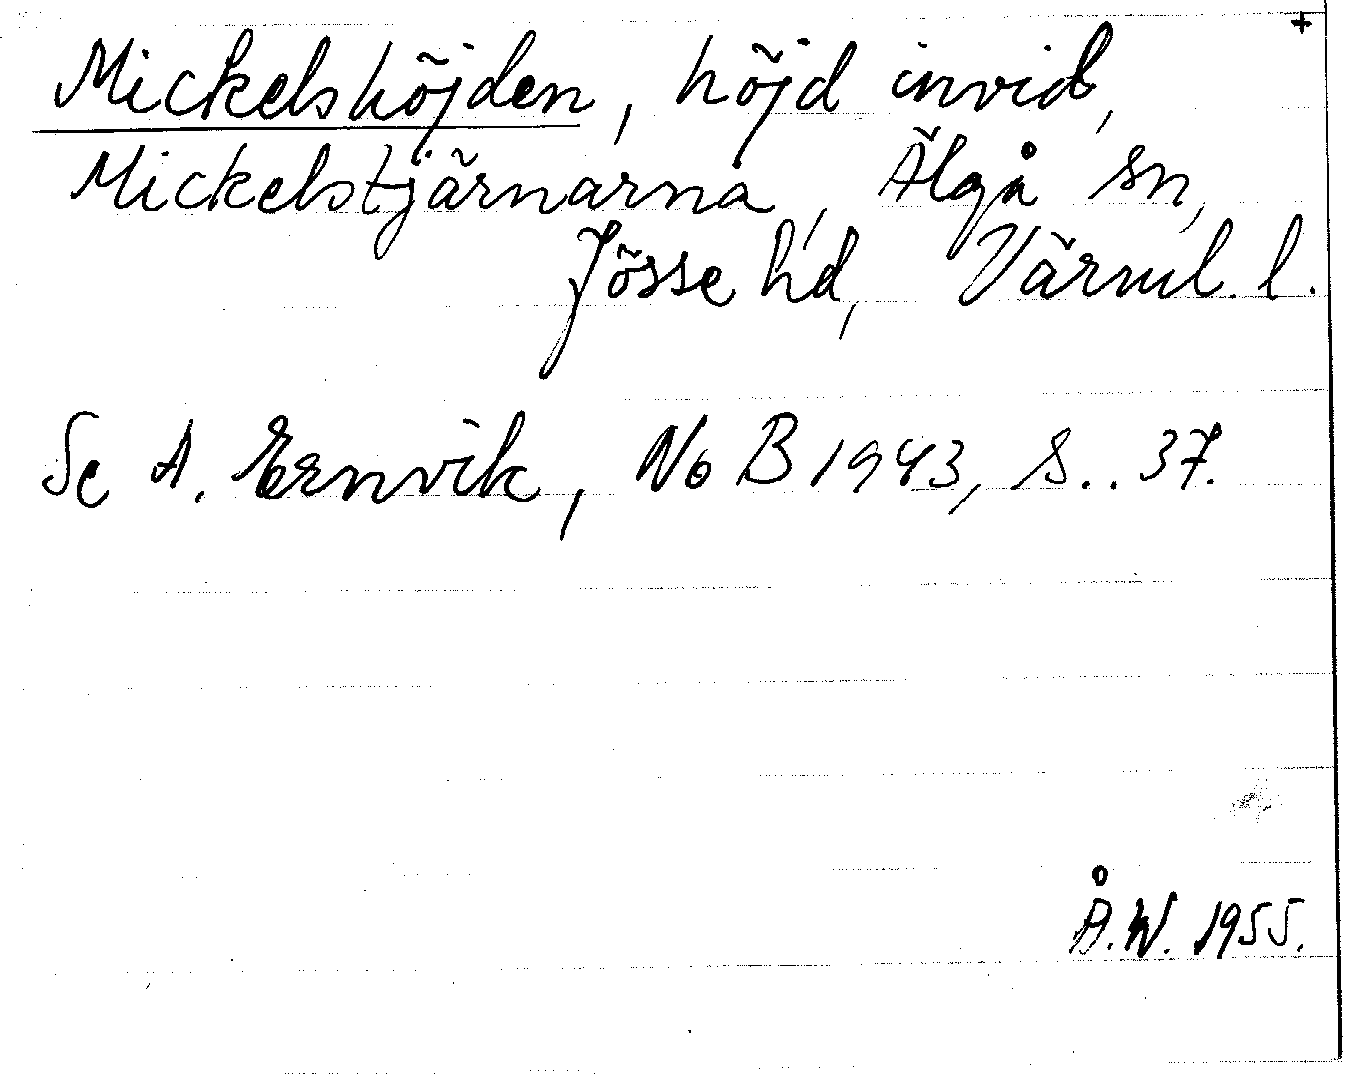 +
Mickelshöjden, höjd invid,
Mickelstjärnarna, Älgå sn,
Jösse hd, Värml. l.
Se A. Ernvik, NoB 1943, s.. 37.
Å.W. 1955.